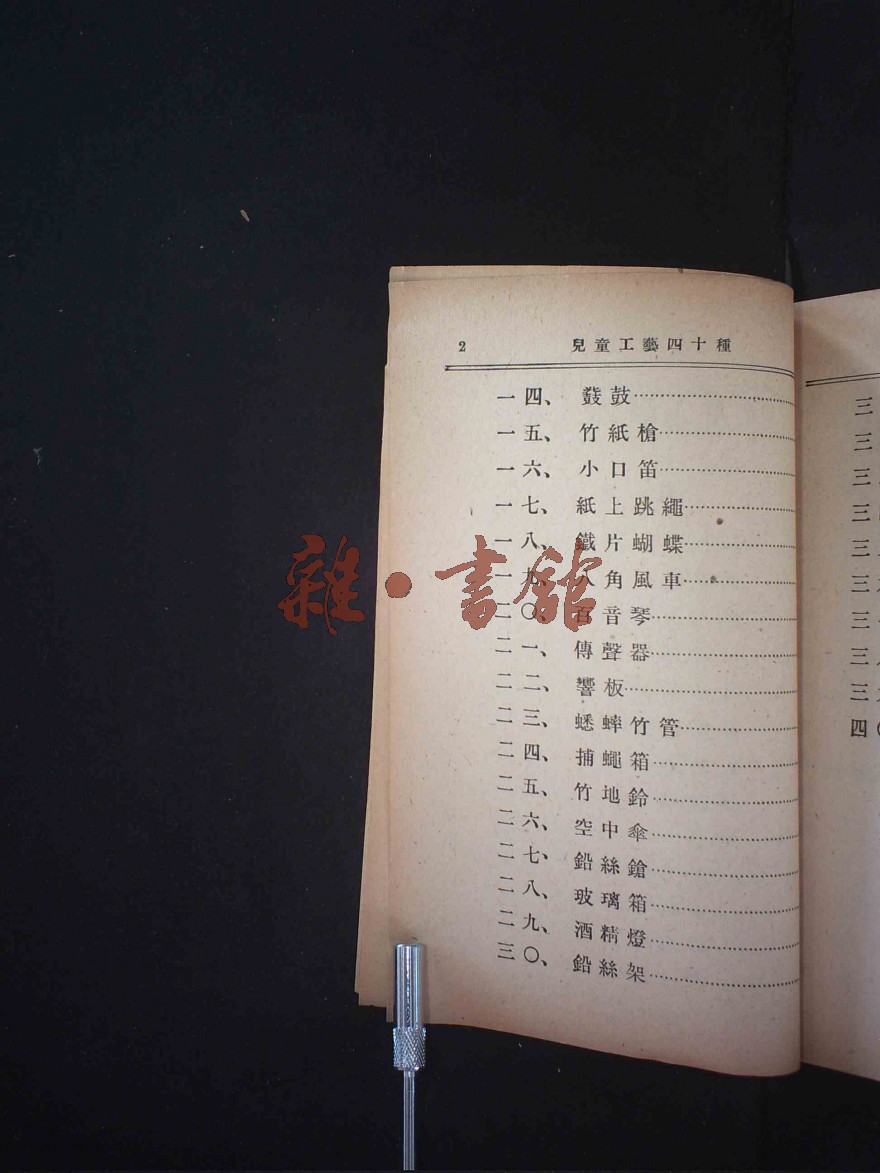 2 兒童工藝四十種
一四、鼗鼓
一五、竹紙槍
一六、小口笛
一七、紙上跳繩
一八、鐵片蝴蝶
一九、八角風車
二〇、百音琴
二一、傳聲器
二二、響板
二三、蟋蟀竹管
二四、捕蠅箱
二五、竹地鈴
二六、空中傘
二七、鉛絲鎗
二八、玻璃箱
二九、酒精燈
三〇、鉛絲架
雜·書館
三
三
三
三
三
三
三
三
三
四